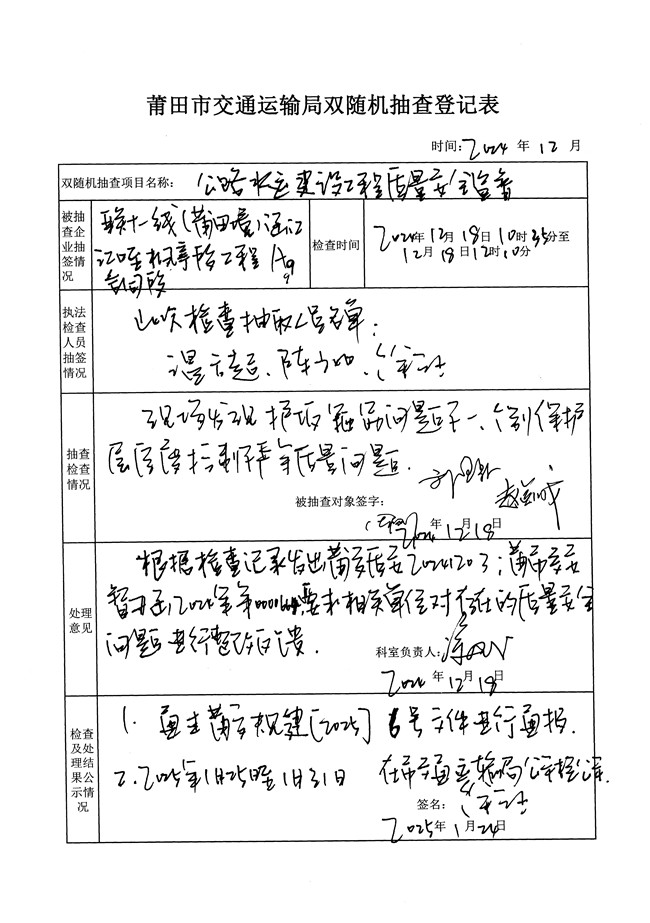 莆田市交通运输局双随机抽查登记表
时间：2024 年 12 月
双随机抽查项目名称： 公路水运建设工程质量安全监督
被抽查企业抽签情况
联十一线(莆田境)涵江
江口至 工程 A9
合同段
检查时间
2024年 12月 18日 10时 35分至
12月 18日 12时 10分
执法检查人员抽签情况
此次检查抽取人员名单：
抽查检查情况
现场发现护坡 问题 一、个别保护
层厚度控制不严等质量问题.
被抽查对象签字：
2024 年 12月 18日
处理意见
根据检查记录发出莆 质安20241203；莆市交安
2024年第 要求相关单位对存在的质量安全
问题进行整改反馈.
科室负责人：
2024 年 12月 18日
检查及处理结果公示情况
1. 莆交规建〔2025〕6号文件进行通报.
2. 2025年1月25日至1月31日 在市交通运输局公示栏公示.
签名：
2025年 1月 24日